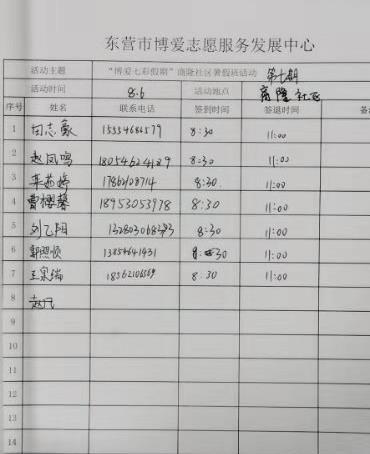 东营市博爱志愿服务发展中心
活动主题 "博爱七彩假期"商隆社区暑假班活动 第七期
活动时间 8.6 活动地点 商隆社区
序号 姓名 联系电话 签到时间 签退时间 备
1 田志豪 15554684579 8:30 11:00
2 赵凤鸣 18054624129 8:30 11:00
3 8:30 11:00
4 曹樱馨 18953053978 8:30 11:00
5 刘乙阳 8:30 11:00
6 郭熙恒 13854641431 8:30 11:00
7 王泉瑞 18562106569 8:30 11:00
8
9
10
11
12
13
14